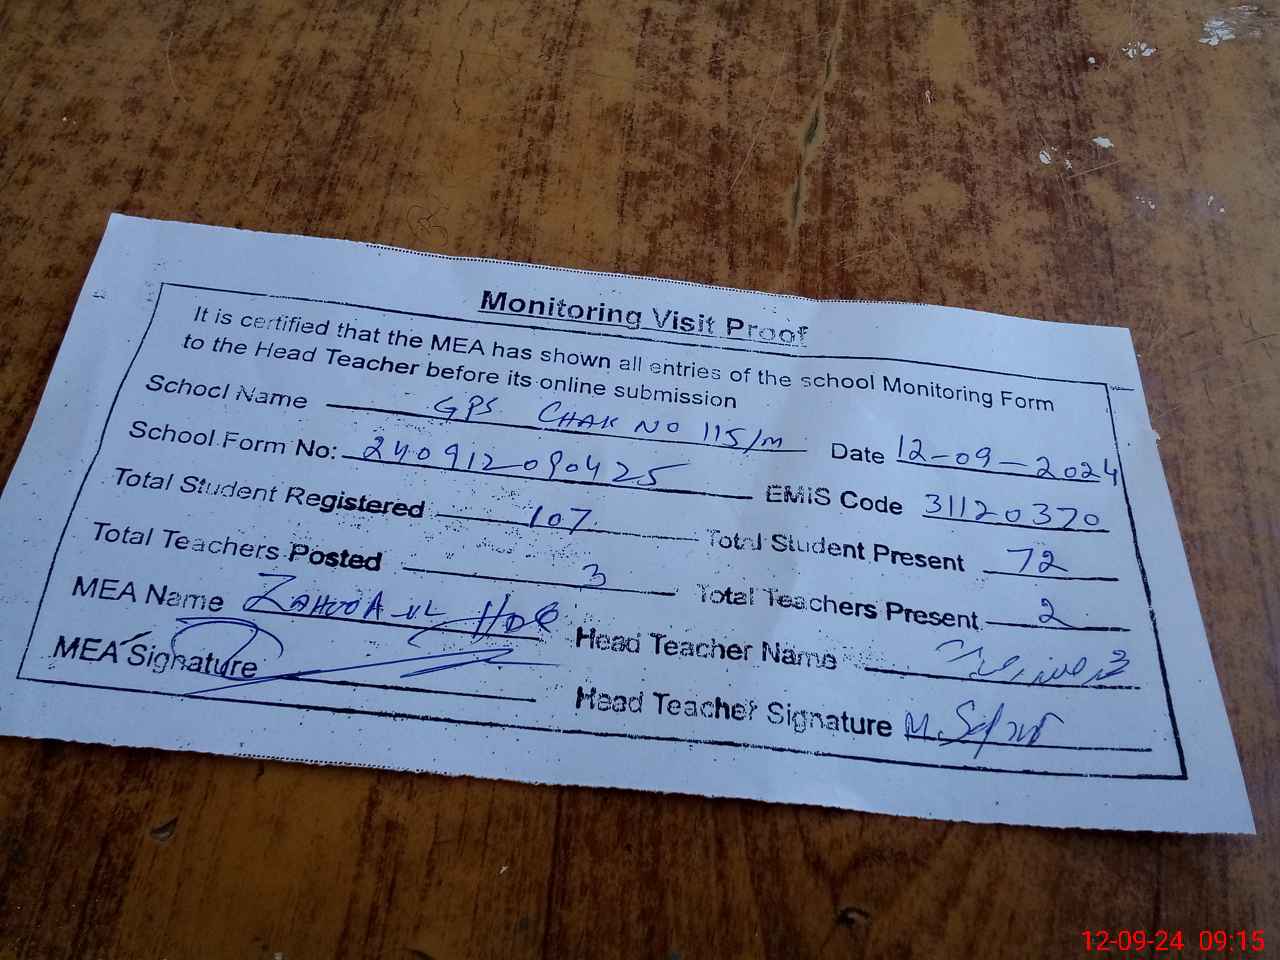 Monitoring Visit Proof
It is certified that the MEA has shown all entries of the school Monitoring Form
to the Head Teacher before its online submission
School Name GPS CHAK NO 115/M Date 12-09-2024
School Form No: 240912090425 EMIS Code 31120370
Total Student Registered 107 Total Student Present 72
Total Teachers Posted 3 Total Teachers Present 2
MEA Name ZAHOOR UL Head Teacher Name
MEA Signature Head Teacher Signature M.
12-09-24 09:15